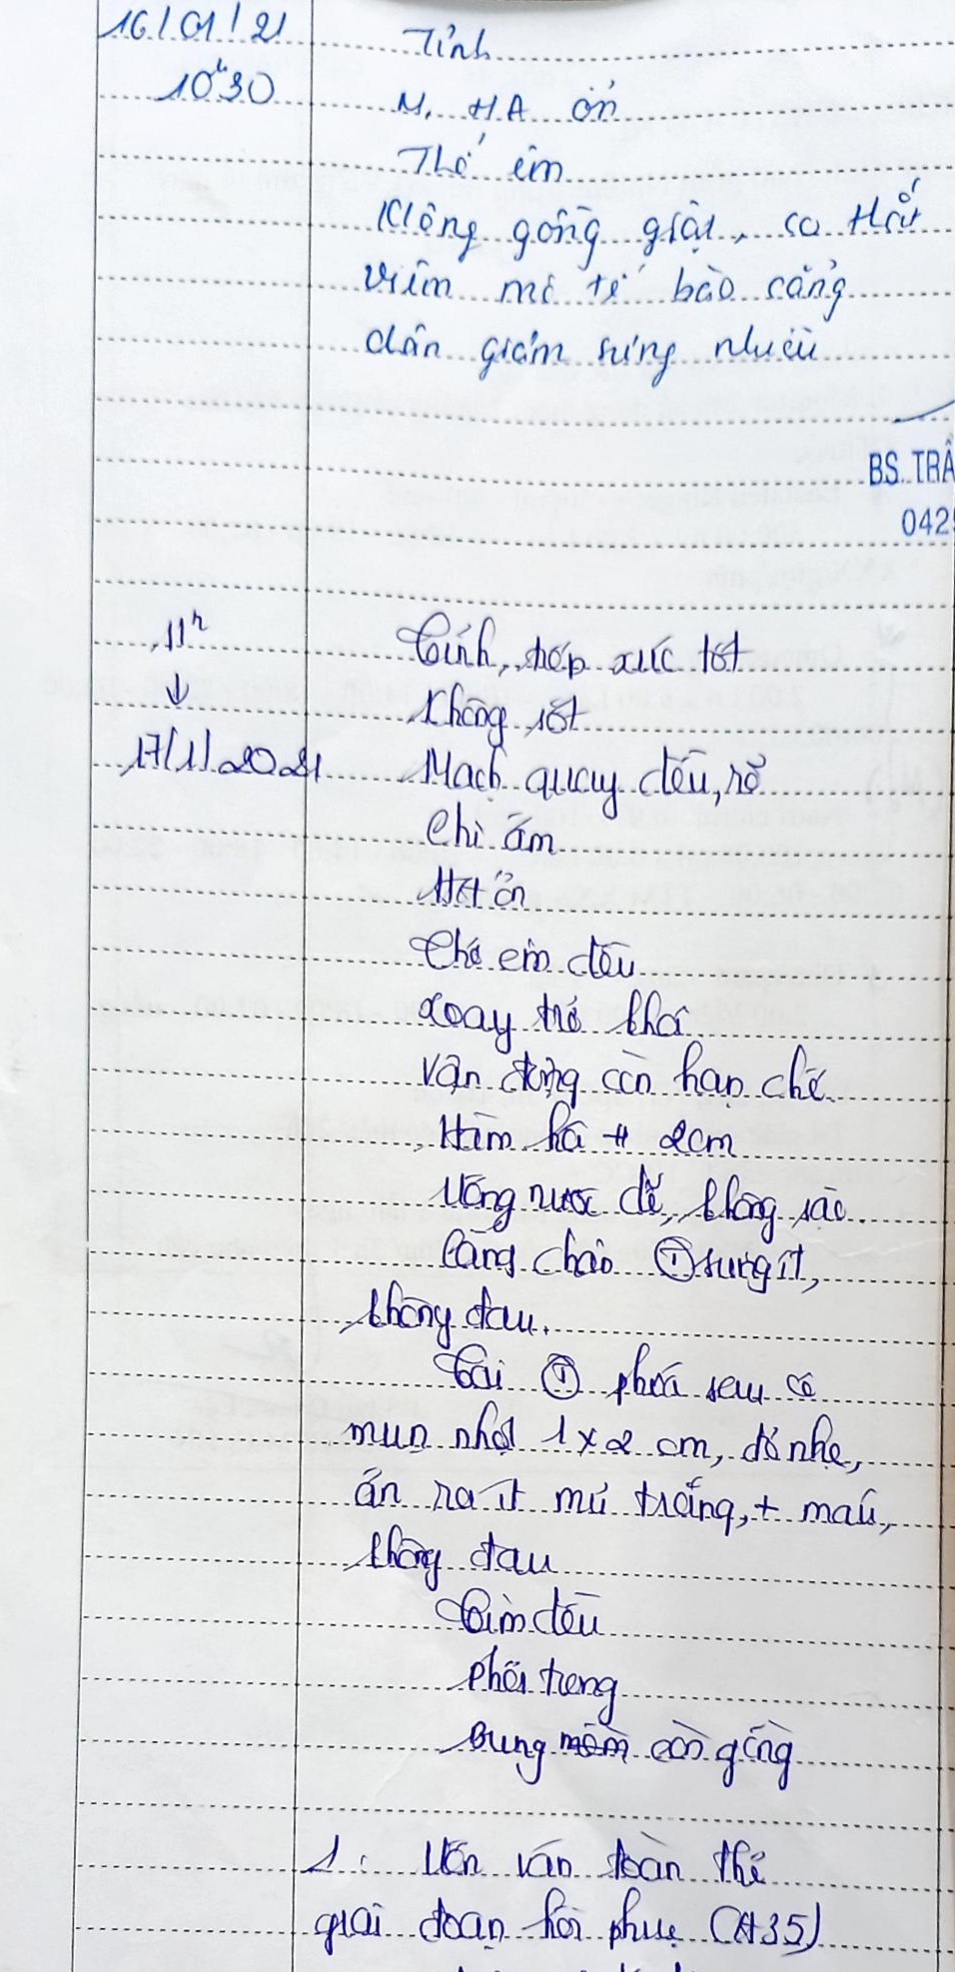 16/01/21 Tỉnh
10h30 M, HA ổn
Thở êm
Không gồng giật, co thắt
viêm mô tế bào cẳng
chân giảm sưng nhiều
BS. TRẦ
042
11h Tỉnh, tiếp xúc tốt
↓ Không sốt
17/1/2021 Mạch quay đều, rõ
Chi ấm
HA ổn
Thở êm đều
Xoay trở khá
Vận động còn hạn chế
Hàm há # 2cm
Uống nước dễ, không sặc
Cẳng chân (T) sưng ít,
không đau.
Tai (T) phía sau có
mụn nhọt 1x2 cm, đỏ nhẹ,
ấn ra ít mủ trắng, + máu,
không đau
Tim đều
Phổi trong
Bụng mềm còn gồng
1. Uốn ván toàn thể
giai đoạn hồi phục (A35)